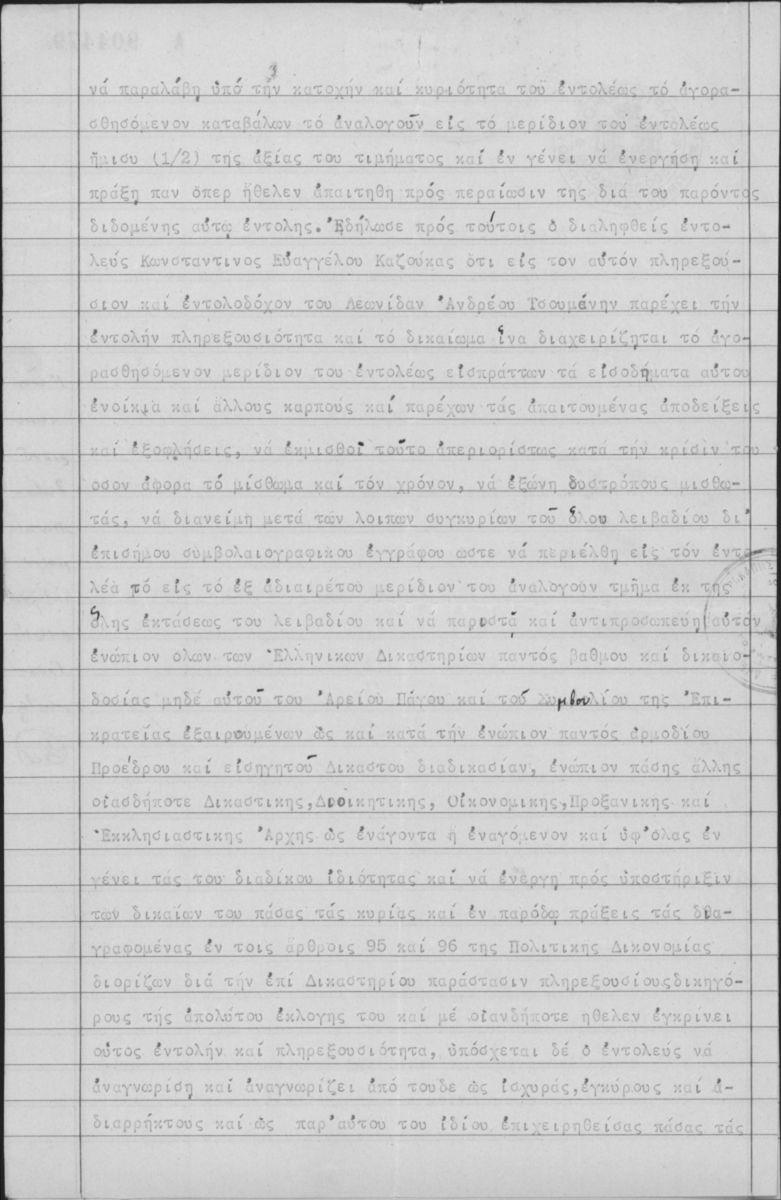 3
νά παραλάβη ὑπό τήν κατοχήν καί κυριότητα τοῦ ἐντολέως τό ἀγορα-
σθησόμενον καταβάλων τό ἀναλογοῦν εἰς τό μερίδιον τοῦ ἐντολέως
ἥμισυ (1/2) της ἀξίας του τιμήματος καί ἐν γένει νά ἐνεργήση καί
πράξη παν ὅπερ ἤθελεν ἀπαιτηθη πρός περαίωσιν της διά του παρόντος
διδομένης αὐτῳ ἐντολης. Ἐδήλωσε πρός τούτοις ὁ διαληφθείς ἐντο-
λεύς Κωνσταντινος Εὐαγγέλου Καζούκας ὅτι εἰς τον αὐτόν πληρεξού-
σιον καί ἐντολοδόχον του Λεωνίδαν Ἀνδρέου Τσουμάνην παρέχει τήν
ἐντολήν πληρεξουσιότητα καί τό δικαίωμα ἵνα διαχειρίζηται τό ἀγο-
ρασθησόμενον μερίδιον του ἐντολέως εἰσπράττων τά εἰσοδήματα αὐτου
ἐνοίκια καί ἄλλους καρπούς καί παρέχων τάς ἀπαιτουμένας ἀποδείξεις
καί ἐξοφλήσεις, νά ἐκμισθοῖ τοῦτο ἀπεριορίστως κατά τήν κρίσιν του
οσον ἀφορα τό μίσθωμα καί τόν χρόνον, νά ἐξώνη δυστρόπους μισθω-
τάς, νά διανείμη μετά των λοιπων συγκυρίων τοῦ ὅλου λειβαδίου δι'
ἐπισήμου συμβολαιογραφικου ἐγγράφου ωστε νά περιέλθη εἰς τόν ἐντο
λέα τό εἰς τό ἐξ ἀδιαιρέτου μερίδιον του ἀναλογοῦν τμῆμα ἐκ της
ὅλης ἐκτάσεως του λειβαδίου καί νά παριστᾶ καί ἀντιπροσωπεύη αὐτόν
ἐνώπιον ολων των Ἑλληνικων Δικαστηρίων παντός βαθμου καί δικαιο-
δοσίας μηδέ αὐτοῦ του Ἀρείου Πάγου καί τοῦ Συμβουλίου της Ἐπι-
κρατείας ἐξαιρουμένων ὡς καί κατά τήν ἐνώπιον παντός ἁρμοδίου
Προέδρου καί εἰσηγητοῦ Δικαστου διαδικασίαν, ἐνώπιον πάσης ἄλλης
οἱασδήποτε Δικαστικης, Διοικητικης, Οἰκονομικης, Προξανικης καί
Ἐκκλησιαστικης Ἀρχης ὡς ἐνάγοντα ἤ ἐναγόμενον καί ὑφ'ὅλας ἐν
γένει τάς του διαδίκου ἰδιότητας καί νά ἐνεργη πρός ὑποστήριξιν
των δικαίων του πάσας τάς κυρίας καί ἐν παρόδῳ πράξεις τάς δια-
γραφομένας ἐν τοις ἄρθροις 95 καί 96 της Πολιτικης Δικονομίας
διορίζων διά τήν ἐπί Δικαστηρίου παράστασιν πληρεξουσίους δικηγό-
ρους τής ἀπολύτου ἐκλογης του καί μέ οἱανδήποτε ηθελεν ἐγκρίνει
οὗτος ἐντολήν καί πληρεξουσιότητα, ὑπόσχεται δέ ὁ ἐντολεύς νά
ἀναγνωρίση καί ἀναγνωρίζει ἀπό τουδε ὡς ἰσχυράς, ἐγκύρους καί ἀ-
διαρρήκτους καί ὡς παρ'αὐτου του ἰδίου ἐπιχειρηθείσας πάσας τάς